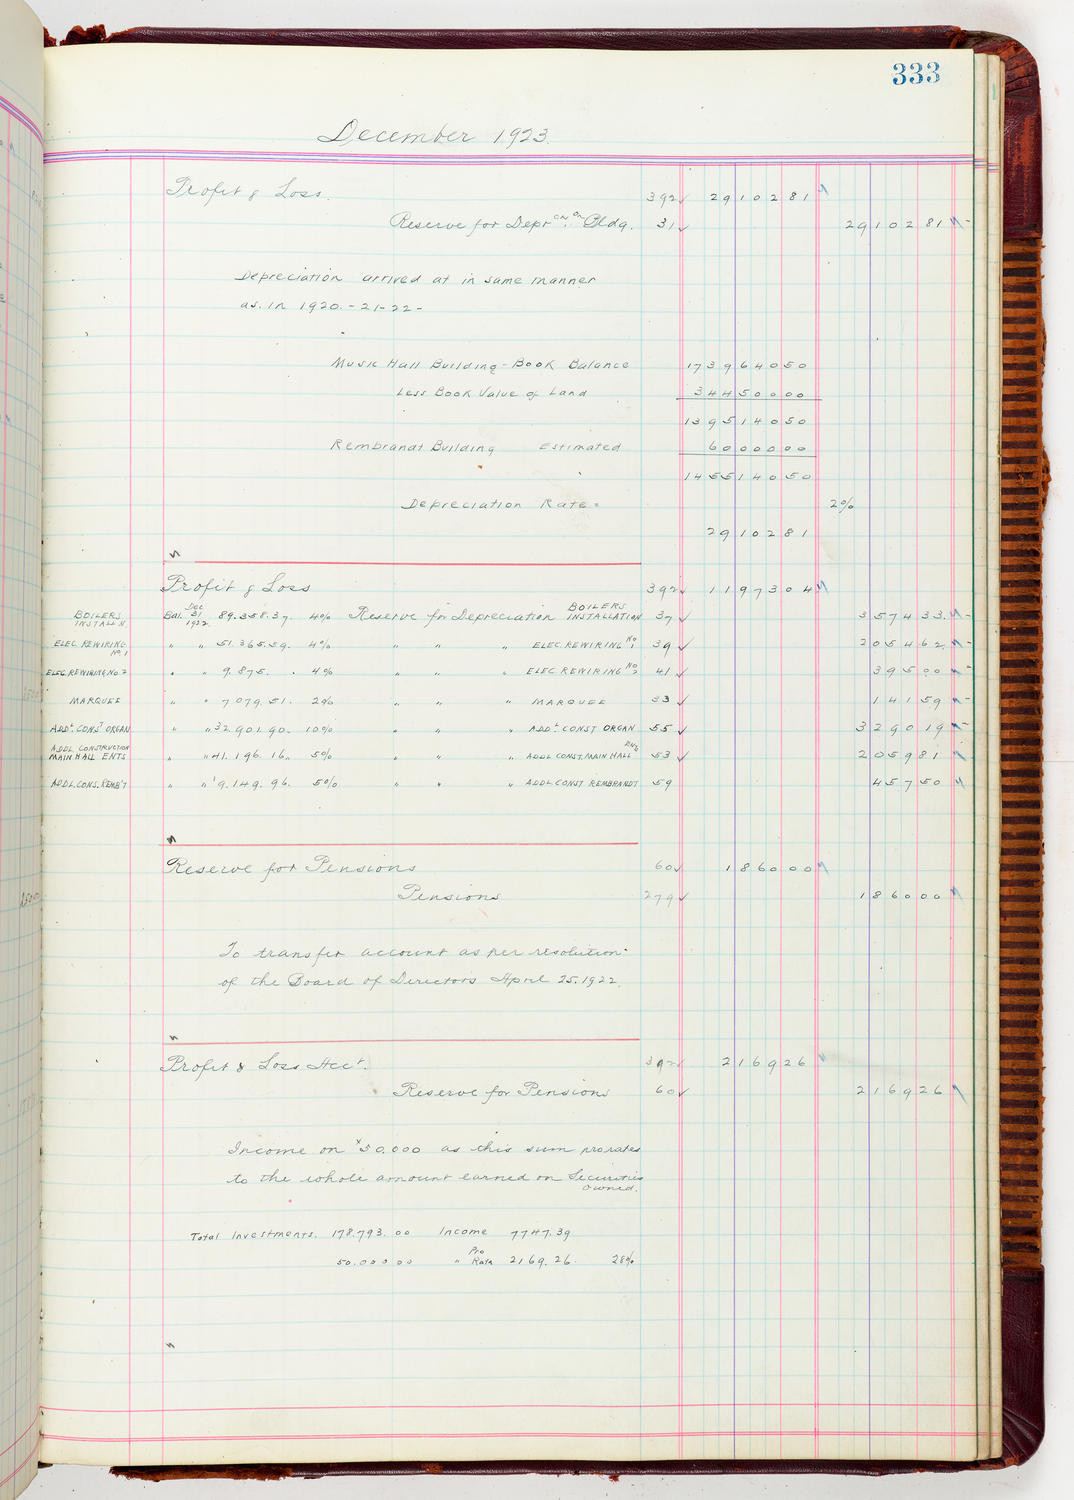 333
December 1923.
Profit & Loss. 392✓ 29102 81
Reserve for Deprcn. on Bldg. 31✓ 29102 81
Depreciation arrived at in same manner
as. in 1920. - 21 - 22 -
Music Hall Building - Book Balance 1739640 50
Less Book Value of Land 344500 00
1395140 50
Rembrandt Building Estimated 60000 00
1455140 50
Depreciation Rate. 2%
29102 81
Profit & Loss 392✓ 11973 04
BOILERS INSTALL'N. Bal. Dec 31 1922 89.358.37. 4% Reserve for Depreciation BOILERS INSTALLATION 37✓ 3574 33.
ELEC. REWIRING No. 1 " " 51.365.59. 4% " " " ELEC. REWIRING No 1 39✓ 2054 62.
ELEC. REWIRING No 2 " " 9.875. . 4% " " " ELEC. REWIRING No 2 41✓ 395 00
MARQUEE " " 7079.51. 2% " " " MARQUEE 33✓ 141 59
ADD'L. CONST ORGAN " " 32.901.90. 10% " " " ADD'L. CONST ORGAN 55✓ 3290 19
ADDL CONSTRUCTION MAIN HALL ENTS " " 41.196.16. 5% " " " ADDL CONST. MAIN HALL 53✓ 2059 81
ADDL. CONS. REMB'T " " 9.149.96. 5% " " " ADDL. CONST REMBRANDT 59 457 50
Reserve for Pensions 60✓ 1860 00
Pensions 279✓ 1860 00
To transfer account as per resolution
of the Board of Directors April 25. 1922.
Profit & Loss Acct. 392✓ 2169 26
Reserve for Pensions 60✓ 2169 26
Income on $50.000 as this sum prorates
to the whole amount earned on Securities
owned.
Total Investments. 178.793.00 Income 7747.39
50.000 00 " Pro Rata 2169.26. 28%